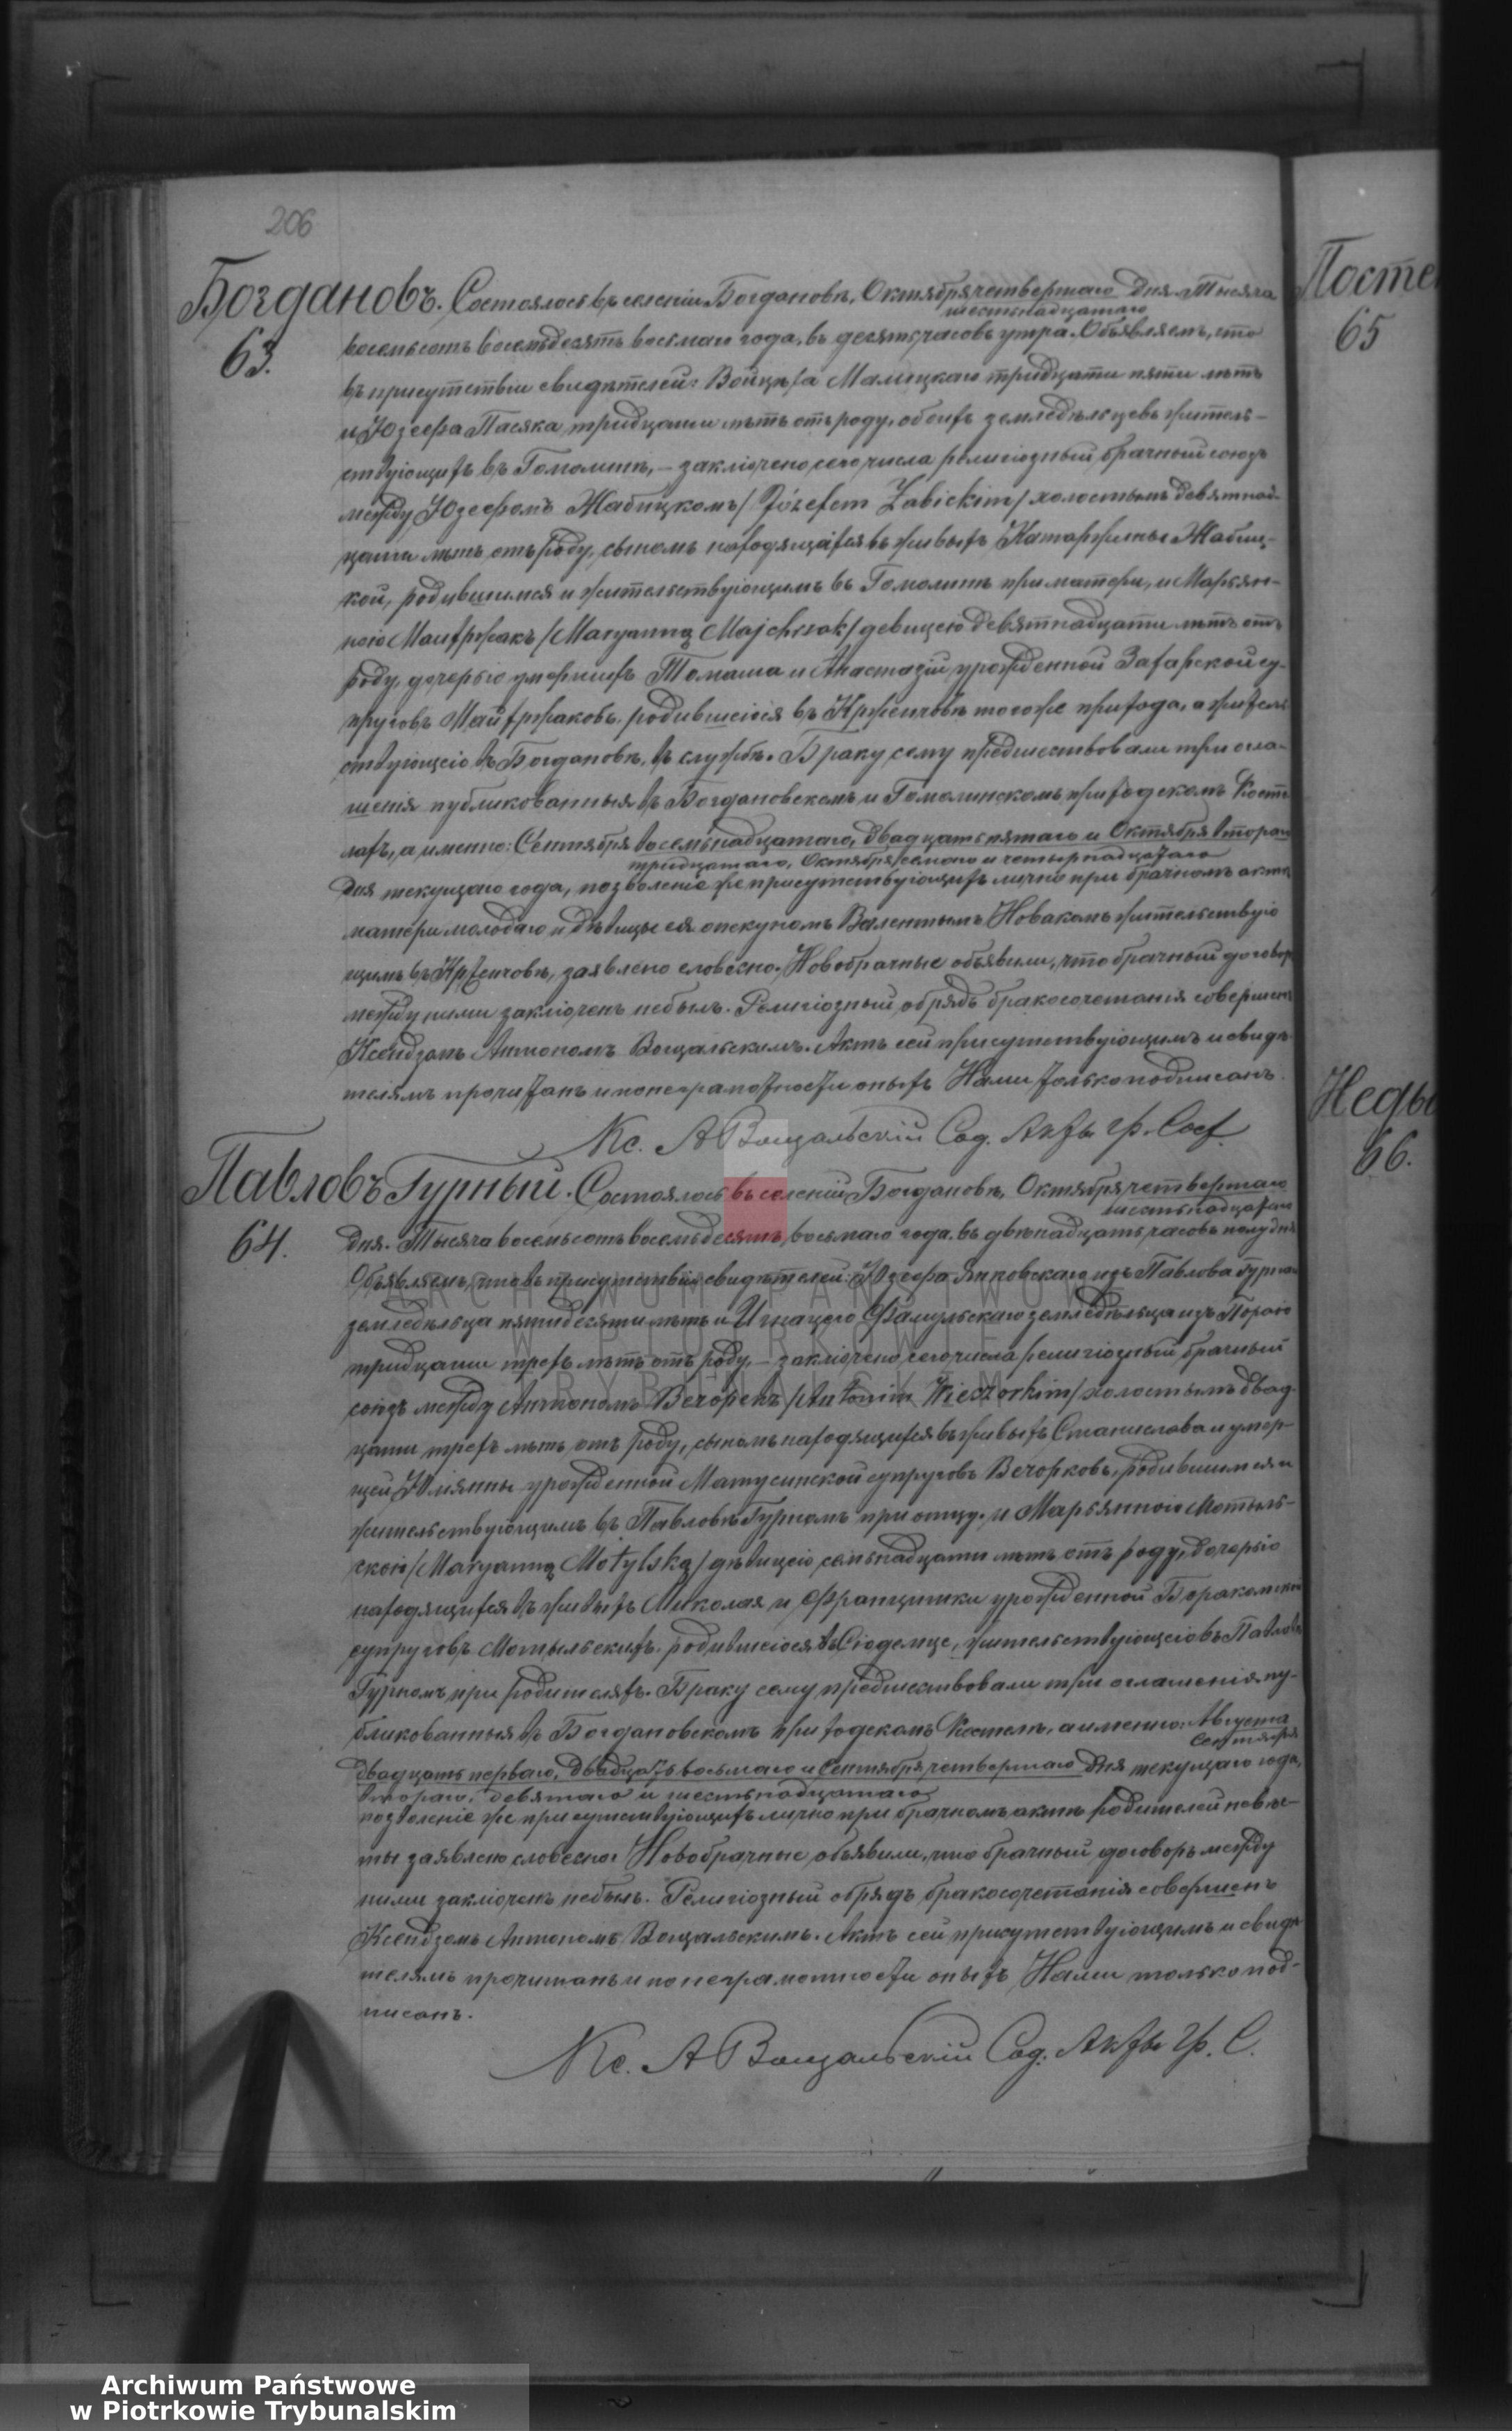 206
Богдановъ. Состоялось въ селеніи Богдановѣ, Октября четвертаго дня Тысяча
шестьнадцатаго
63.
восемьсотъ восемьдесятъ восьмаго года, въ десять часовъ утра. Объявляемъ, что
въ присутствіи свидѣтелей: Войцѣха Малицкаго тридцати пяти лѣтъ
и Юзефа Пасяка тридцати лѣтъ отъ роду, обоихъ земледѣльцевъ житель-
ствующихъ въ Гомолинѣ, – заключено сего числа религіозный брачный союзъ
между Юзефомъ Жабицкомъ /Józefem Żabickim/ холостымъ девятнад-
цати лѣтъ отъ роду, сыномъ находящейся въ живыхъ Катаржины Жабиц-
кой, родившимся и жительствующимъ въ Гомолинѣ при матери, и Марьян-
ною Маихржакъ /Maryanną Majchrzak/ девицею девятнадцати лѣтъ отъ
роду, дочерью умершихъ Томаша и Анастазіи урожденной Захарской су-
пруговъ Майхржаковъ, родившеюся въ тогоже прихода, а житель
ствующею въ Богдановѣ, въ службѣ. Браку сему предшествовали три огла-
шенія публикованныя въ Богдановскомъ и Гомолинскомъ приходскомъ Косте
лахъ, а именно: Сентября восемьнадцатаго, двадцать пятаго и Октября втораго
тридцатаго, Октября седмаго и четырнадцатаго
дня текущаго года, позволеніе же присутствующихъ лично при брачномъ актѣ
матери молодаго и дѣвицы ея опекуномъ Валентымъ Новакомъ жительствую
щимъ въ заявлено словесно. Новобрачные объявили, что брачный договоръ
между ними заключенъ небылъ. Религіозный обрядъ бракосочетанія совершенъ
Ксендзомъ Антономъ Вощальскимъ. Актъ сей присутствующимъ и свидѣ-
телямъ прочитанъ и понеграмотности оныхъ Нами только подписанъ.
Кс. А Вощальскій Сод. Акты Гр. Сост.
Павловъ Гурный. Состоялось въ селеніи Богдановѣ, Октября четвертаго
шестьнадцатаго
64.
дня. Тысяча восемьсотъ восемьдесятъ восьмаго года, въ двѣнадцать часовъ полудня
Объявляемъ, что въ присутствіи свидѣтелей: Юзефа Янковскаго изъ Павлова Гурнаго
земледѣльца пятидесяти лѣтъ и Игнацего Фамульскаго земледѣльца изъ
тридцати трехъ лѣтъ отъ роду, – заключено сего числа религіозный брачный
союзъ между Антономъ Вечорекъ /Antonim Wieczorkim/ холостымъ двад-
цати трехъ лѣтъ отъ роду, сыномъ находящихся въ живыхъ Станислава и умер-
щей Юліянны урожденной Матусинской супруговъ Вечорковъ, родившимся и
жительствующимъ въ Павловѣ Гурномъ при отцу, и Марьянною Мотыль-
скою /Maryanną Motylską/ дѣвицею семьнадцати лѣтъ отъ роду, дочерью
находящихся въ живыхъ Миколая и Францишки урожденной
супруговъ Мотыльскихъ, родившеюся въ жительствующею въ Павловѣ
Гурномъ при родителяхъ. Браку сему предшествовали три оглашенія пу-
бликованныя въ Богдановскомъ приходскомъ Костелѣ, а именно: Августа
Сентября
двадцать перваго, двадцать восьмаго и Сентября четвертаго дня текущаго года,
втораго, девятаго и шестьнадцатаго
позволеніе же присутствующихъ лично при брачномъ актѣ родителей невѣс-
ты заявлено словесно. Новобрачные объявили, что брачный договоръ между
ними заключенъ небылъ. Религіозный обрядъ бракосочетанія совершенъ
Ксендзомъ Антономъ Вощальскимъ. Актъ сей присутствующимъ и свидѣ-
телямъ прочитанъ и понеграмотности оныхъ Нами только под-
писанъ.
Кс. А Вощальскій Сод. Акты Гр. С.
65
66.
ARCHIWUM PAŃSTWOWE
W PIOTRKOWIE
TRYBUNALSKIM
Archiwum Państwowe
w Piotrkowie Trybunalskim